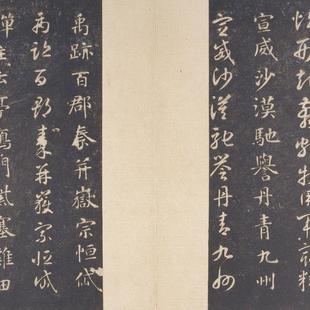 煩刑起翦頗牧用軍最精
宣威沙漠馳譽丹青九州
宣威沙漠馳譽丹青九州
禹跡百郡秦并嶽宗恒岱
禹跡百郡秦并嶽宗恒岱
禪主云亭鴈門紫塞雞田